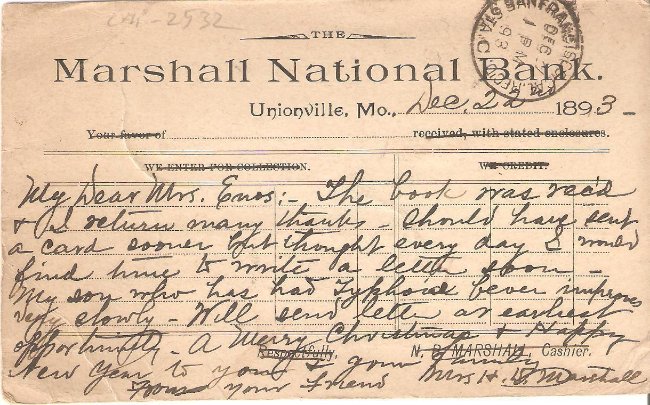 CAL-2932
THE
Marshall National Bank.
Unionville, Mo., Dec. 22 1893-
Your favor of received, with stated enclosures.
WE ENTER FOR COLLECTION. WE CREDIT.
My Dear Mrs. Enos:- The book was rec'd
& I return many thanks - Should have sent
a card sooner but thought every day I would
find time to write a letter soon -
My son who has had Typhoid fever improves
very slowly - Will send letter at earliest
opportunity - A Merry Christmas & Happy
Respectfully, N. B. MARSHALL, Cashier.
New Year to you & your family
From your friend Mrs. H. S. Marshall
SAN FRANCISCO, CAL. REC'D
DEC
1 PM
93
STA. C